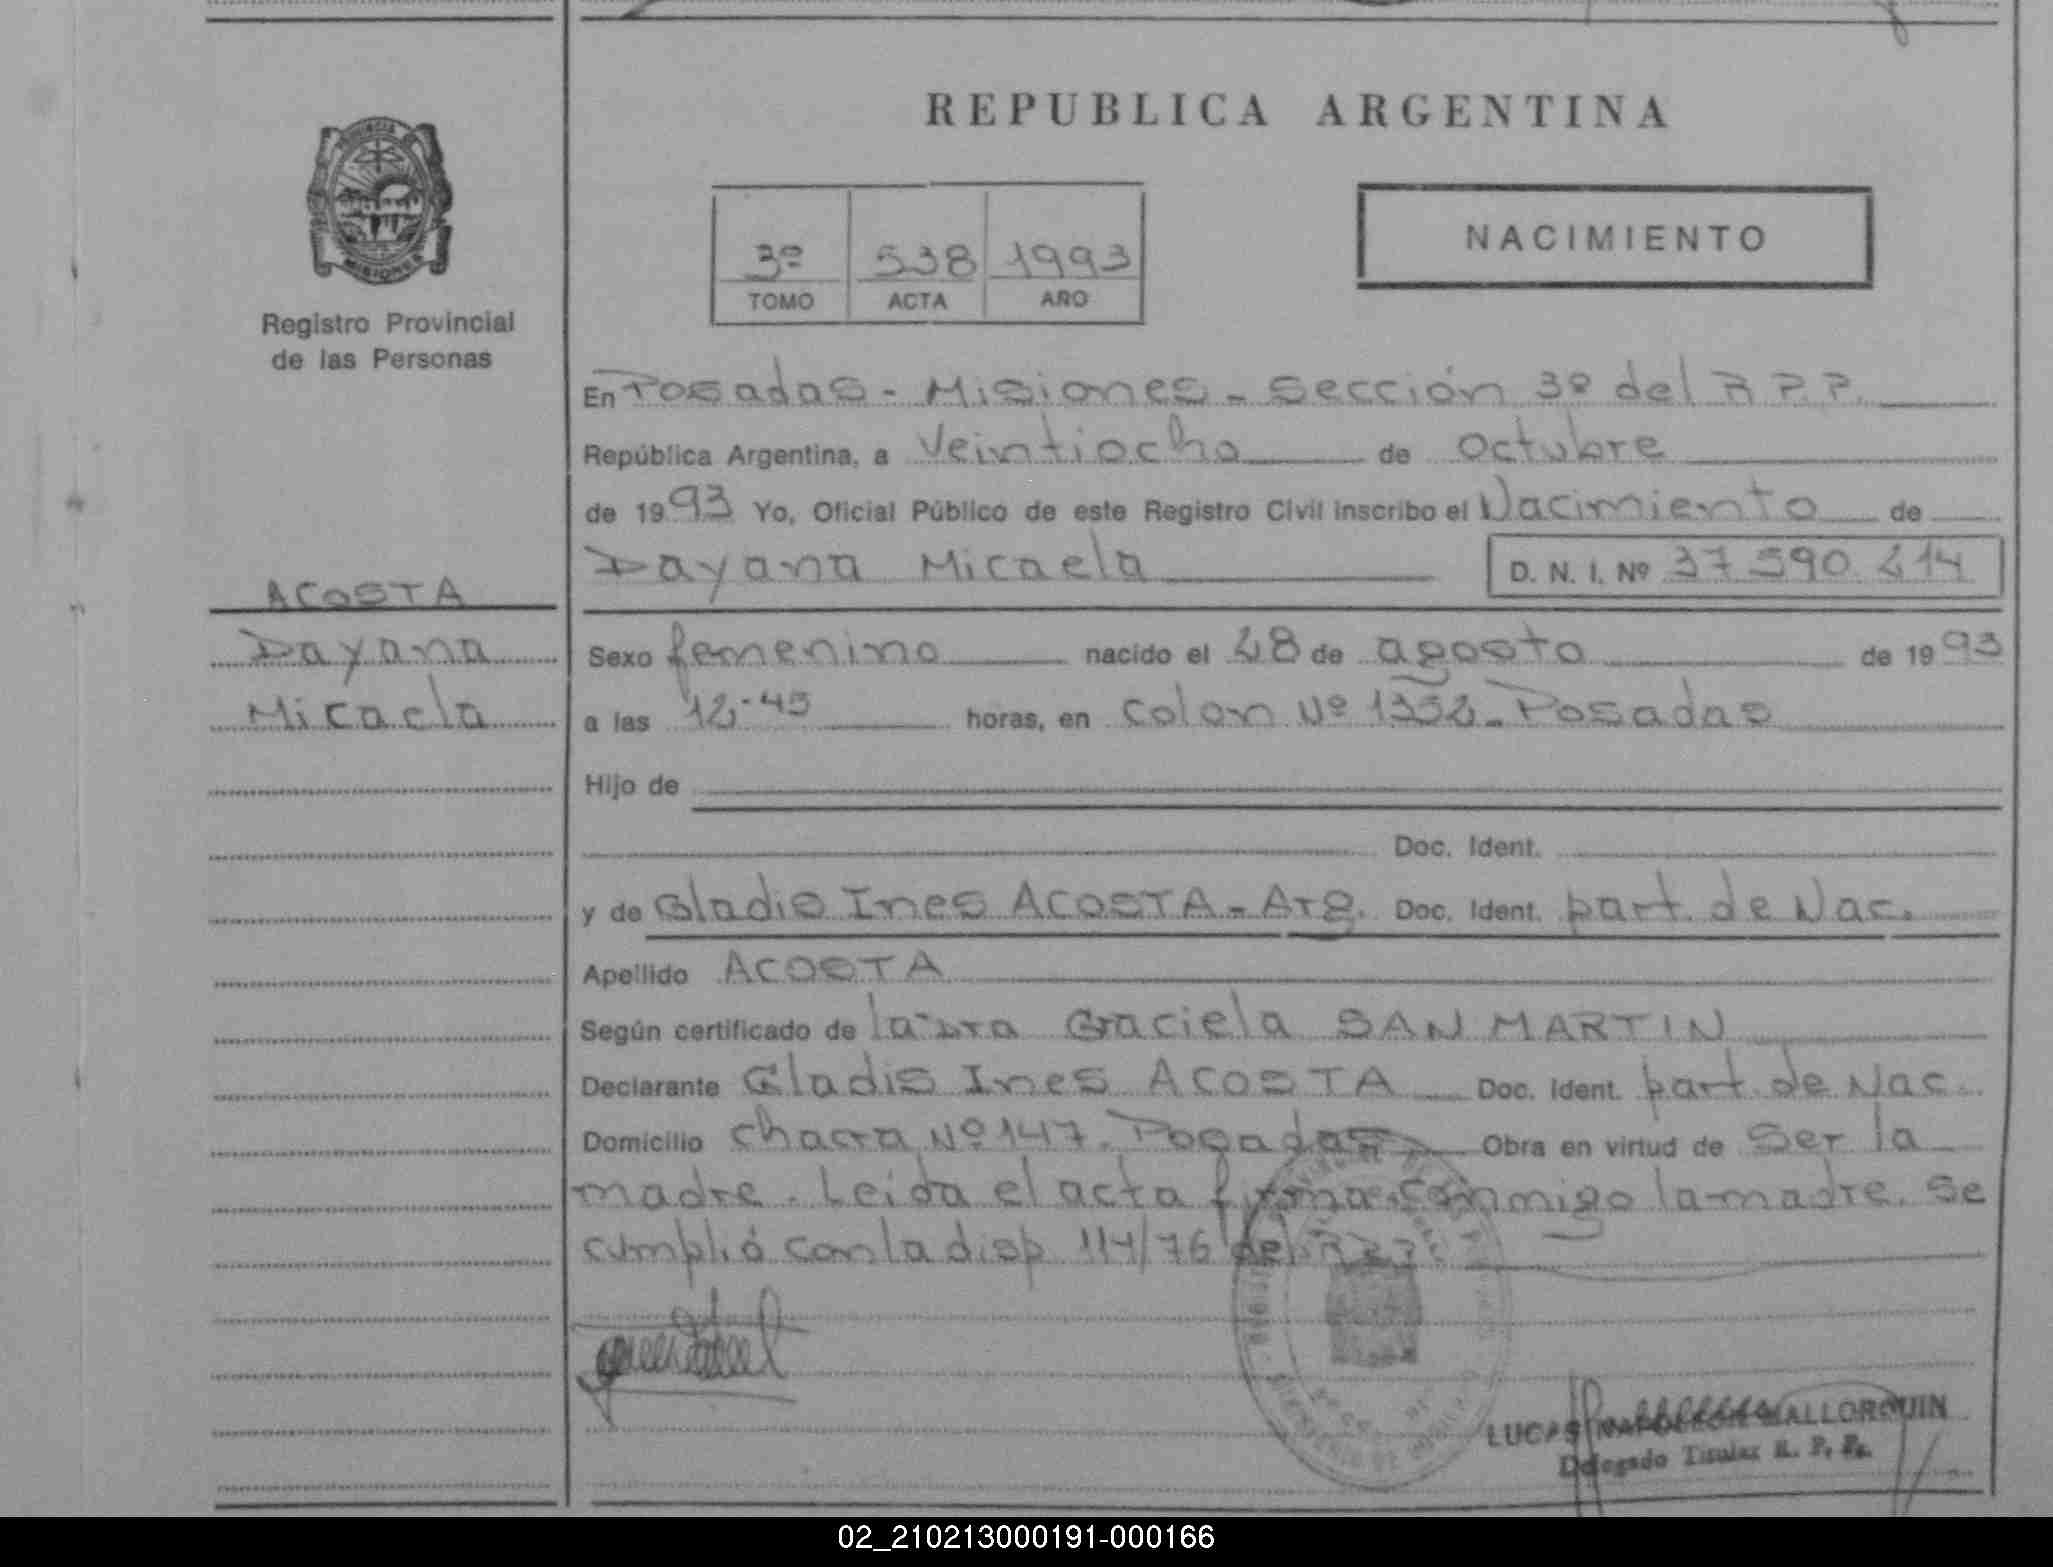 REPUBLICA ARGENTINA
MISIONES
Registro Provincial
de las Personas
3º 538 1993
TOMO ACTA AÑO
NACIMIENTO
En Posadas - Misiones - Sección 3º del R.P.P.
República Argentina, a Veintiocho de Octubre
de 1993 Yo, Oficial Público de este Registro Civil inscribo el Nacimiento de
Dayana Micaela D. N. I. Nº 37 590 214
ACOSTA
Dayana
Micaela
Sexo femenino nacido el 28 de agosto de 1993
a las 12-45 horas, en Colon Nº 1332 - Posadas
Hijo de
Doc. Ident.
y de Gladis Ines ACOSTA - Arg. Doc. Ident. part. de Nac.
Apellido ACOSTA
Según certificado de la Dra Graciela SAN MARTIN
Declarante Gladis Ines ACOSTA Doc. Ident. part. de Nac.
Domicilio chacra Nº 147 - Posadas Obra en virtud de Ser la
madre - Leida el acta firma conmigo la madre. Se
cumplió con la disp 114/76 del R.P.P.
LUCAS NAPOLEON MALLORQUIN
Delegado Titular R. P. Ps.
02_210213000191-000166